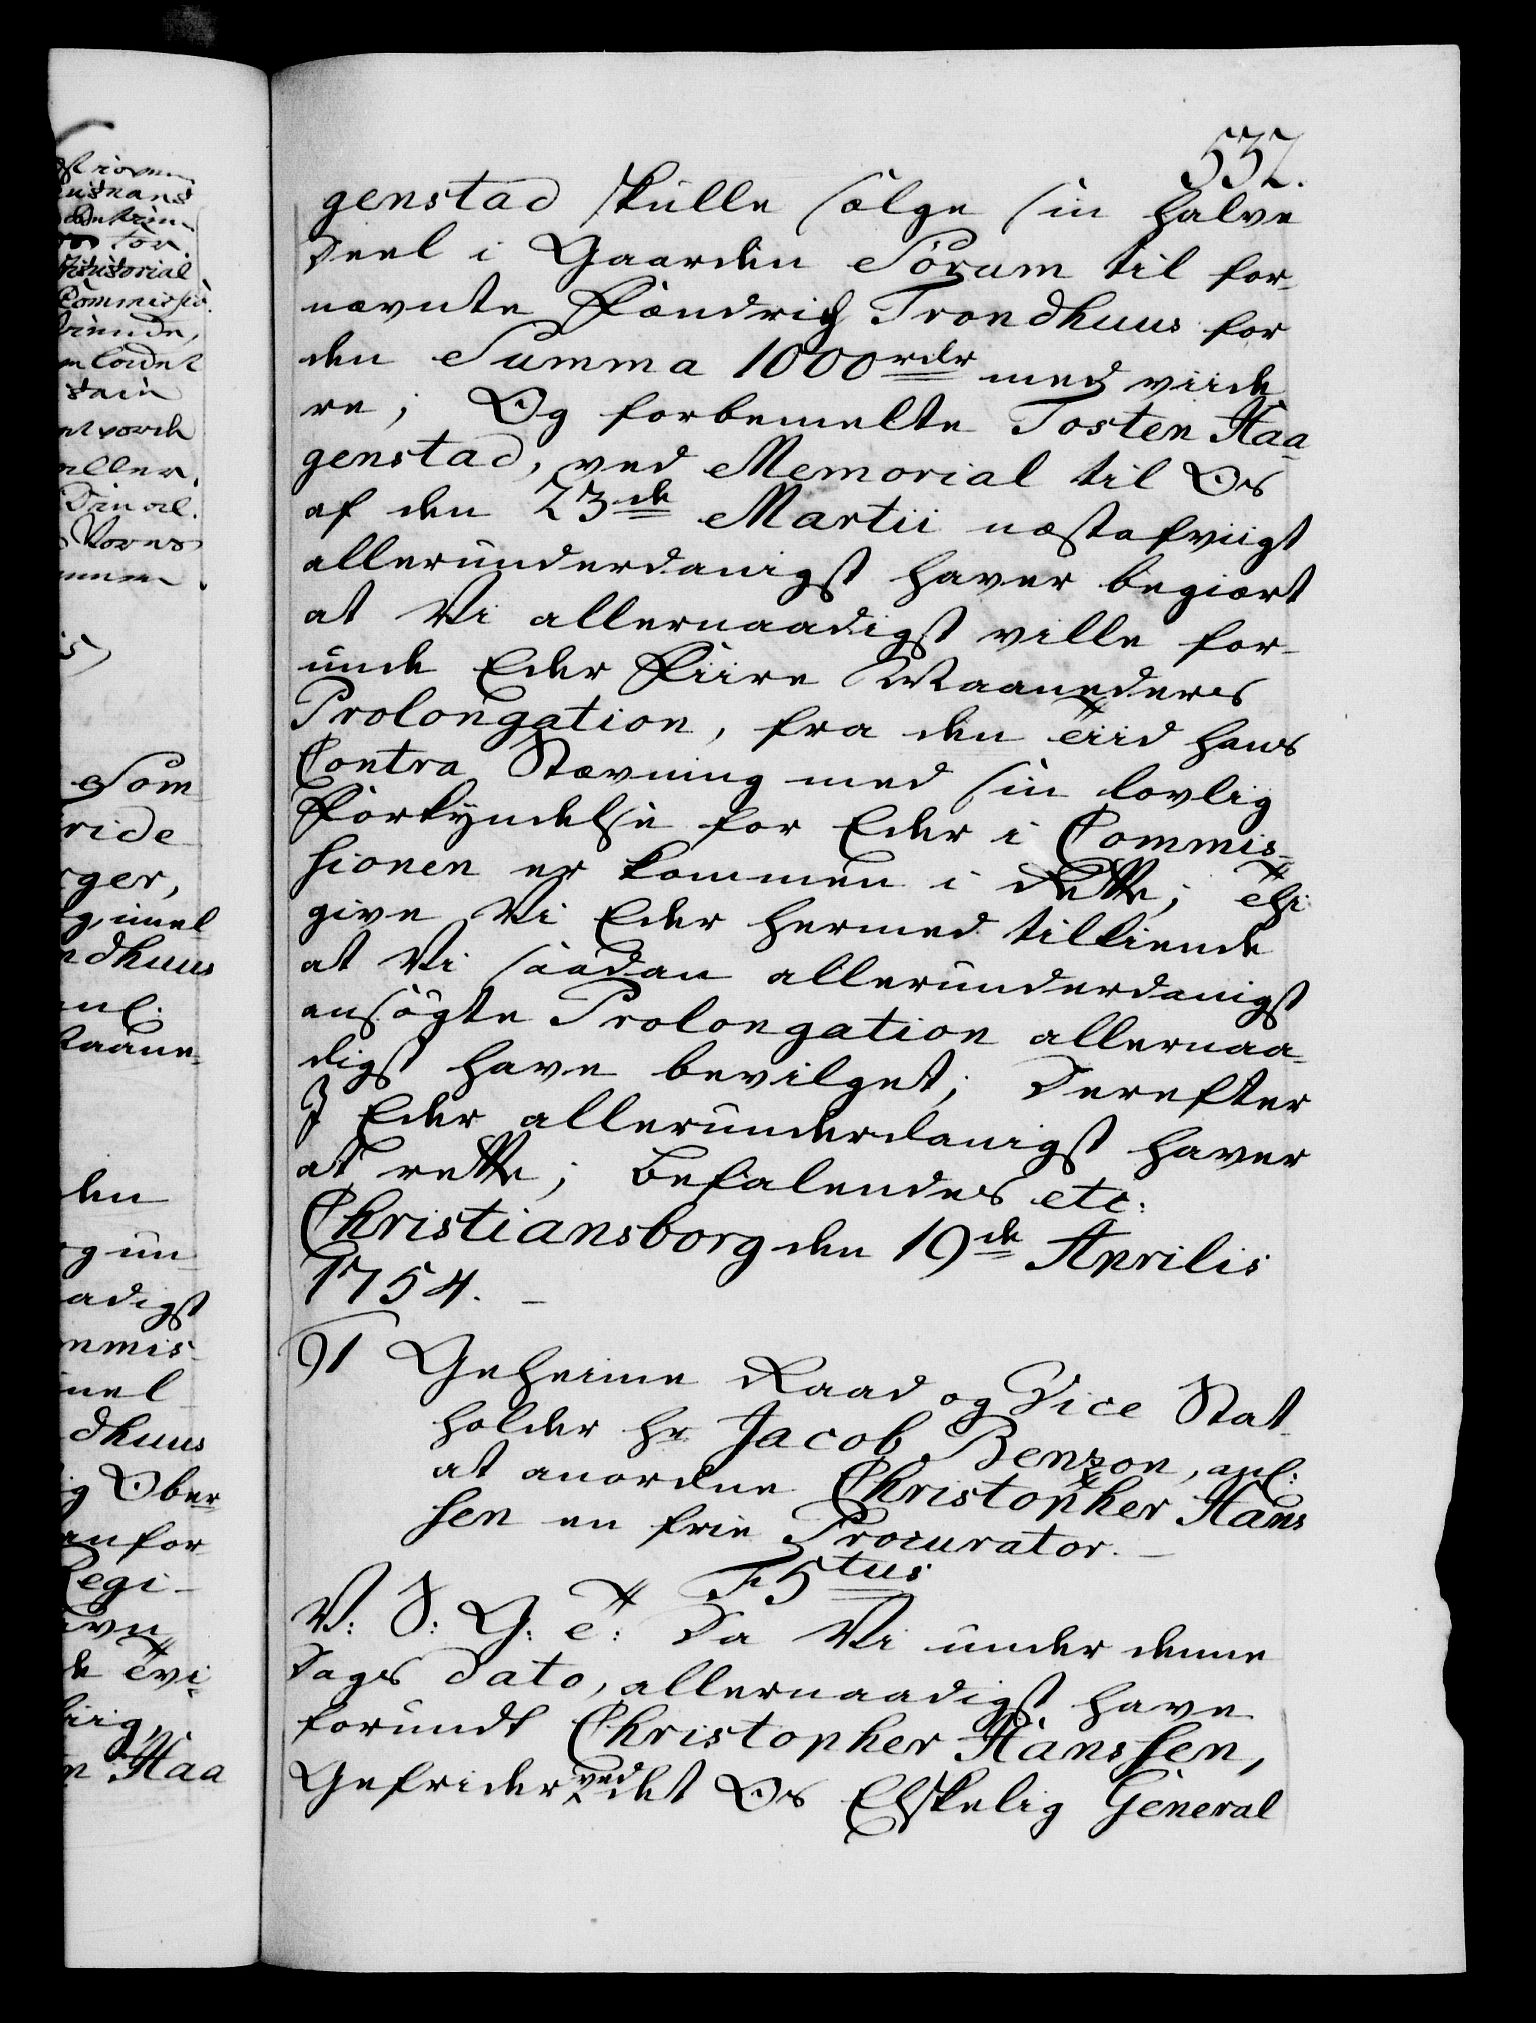 532.
genstad skulle sælge sin halve
Deel i Gaarden Sörum til for-
nævnte Fændrich Trondhuus for
den Summa 1000 rdr med viide-
re; Og forbemelte Tosten Haa-
genstad, ved Memorial til Os
af den 23de Martii næstafvigt
allerunderdanigst haver begiært
at Vi allernaadigst ville for-
unde Eder Fiire Maaneders
Prolongation, fra den Tiid hans
Contra Stævning med sin lovlig
Forkyndelse for Eder i Commis-
sionen er kommen i Rette; Thi
give Vi Eder hermed tilkiende
at Vi saadan allerunderdanigst
ansøgte Prolongation allernaa-
digst have bevilget; Derefter
I Eder allerunderdanigst haver
at rette; Befalendes etc:
Christiansborg den 19de Aprilis
1754. -
91 Geheime Raad og Vice Stat-
holder Hr Jacob Benzon, anl:
at anordne Christopher Hans
sen en frie Procurator. -
F 5tus
V: S: G: T: Da Vi under denne
Dags Dato, allernaadigst have
forundt Christopher Hanssen,
Gefrider ved det Os Elskelig General
ridde
rger,
dhuus
Som
den
g un
adigst
mmis-
dhuus
ig Ober-
an for-
Regi-
de Tvi-
n Haa